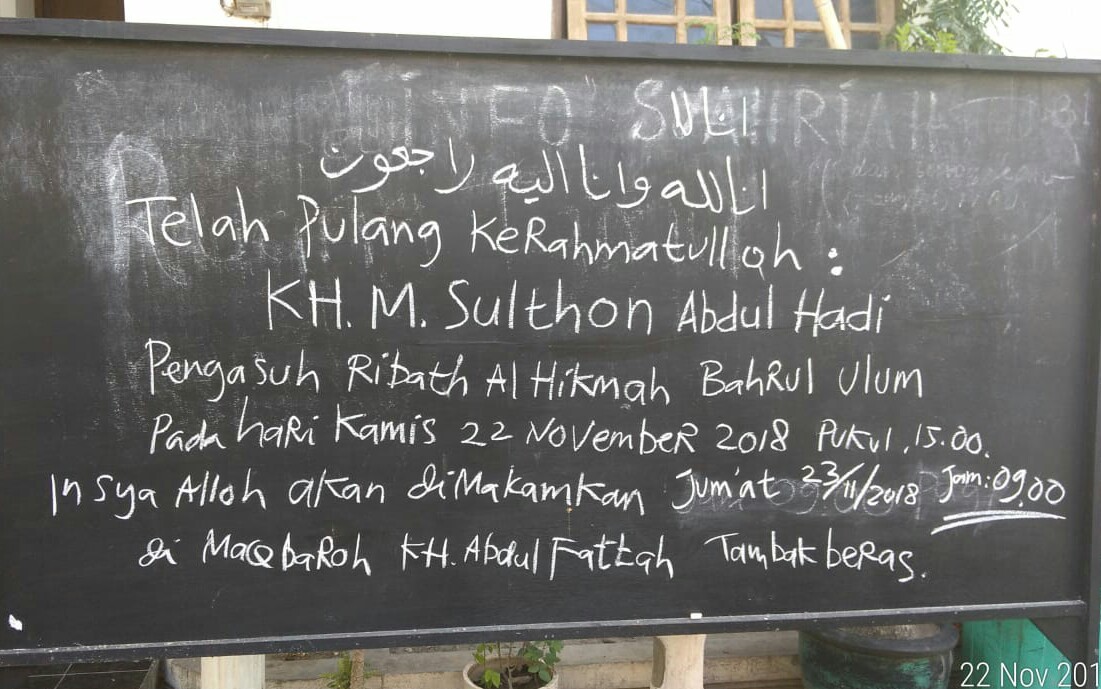 انا لله وانا اليه راجعون
Telah Pulang KeRahmatulloh :
KH. M. Sulthon Abdul Hadi
Pengasuh Ribath Al Hikmah Bahrul Ulum
Pada hari Kamis 22 November 2018 Pukul. 15.00.
In sya Alloh akan diMakamkan Jum'at 23/11/2018 Jam: 09.00
di Maqbaroh KH. Abdul Fattah Tambak beras.
22 Nov 201